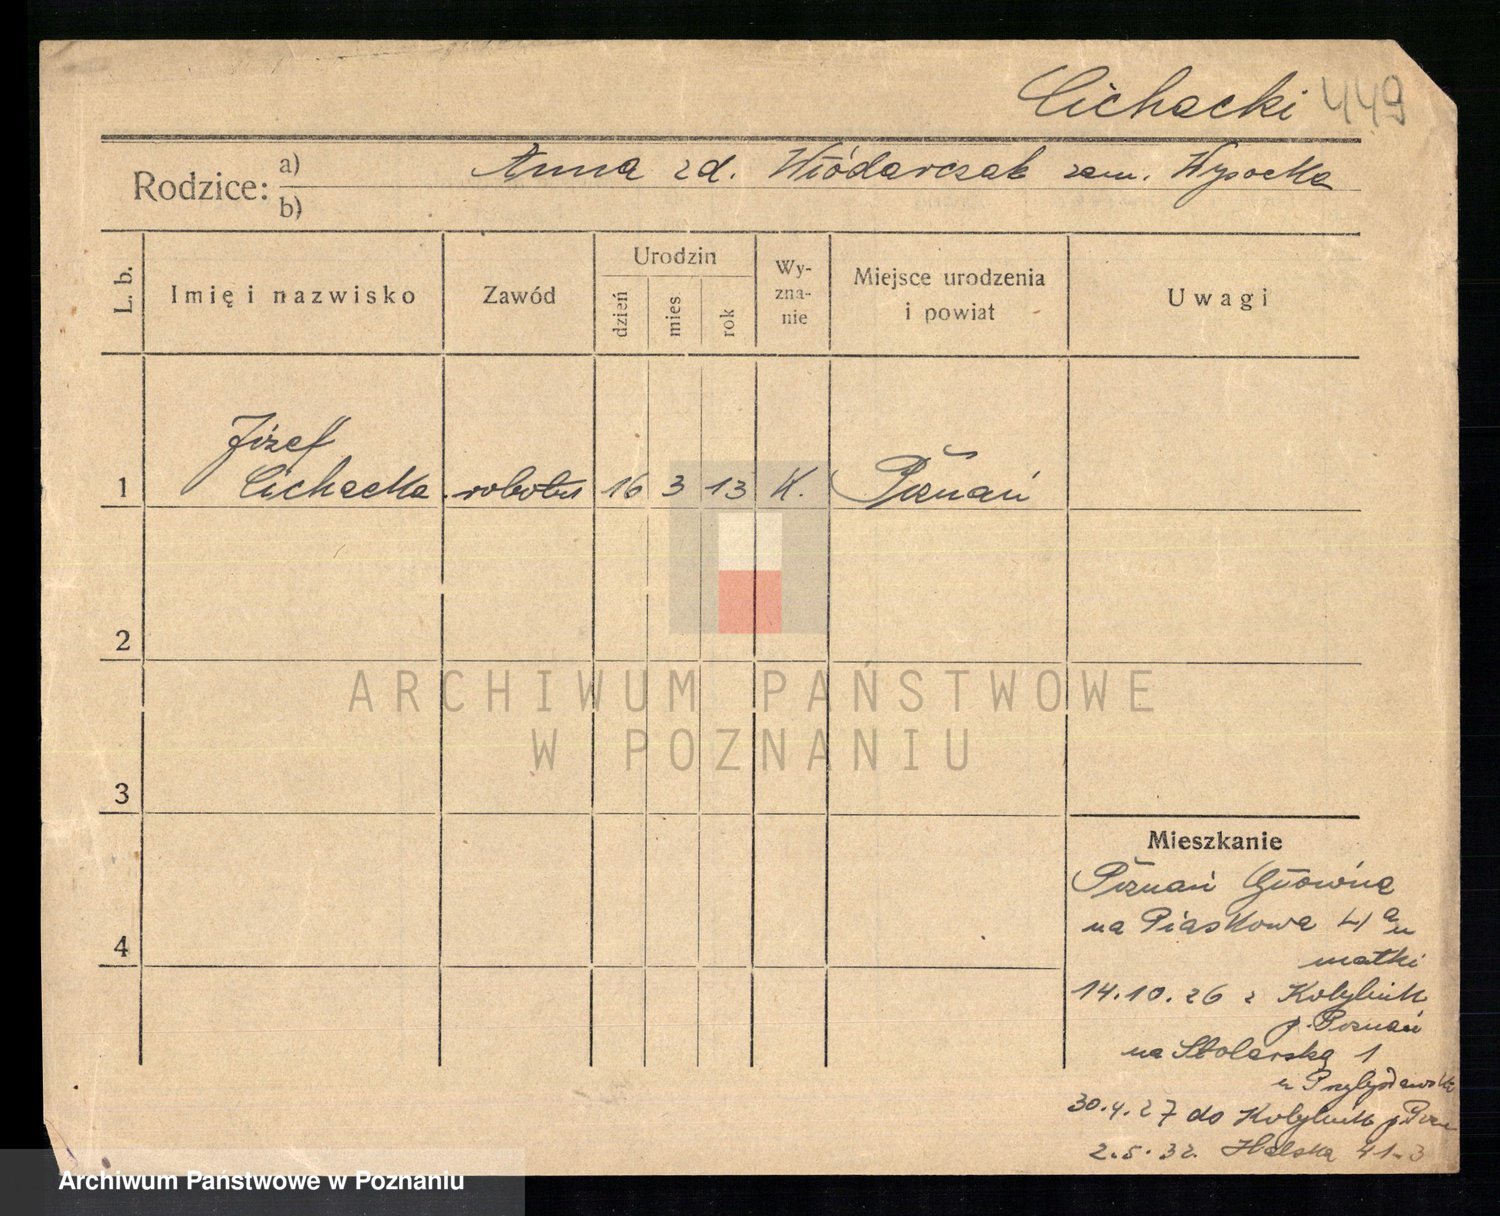 Cichacki 449
Rodzice: a) Anna zd. Włódarczak zam. Wysocka
b)
L. b.
Imię i nazwisko
Zawód
Urodzin
dzień
mies
rok
Wy-
zna-
nie
Miejsce urodzenia
i powiat
Uwagi
Józef
1 Cichacka robotn 16 3 13 K. Poznań
2
3
4
Mieszkanie
Poznań Główna
na Piaskowa 4 a u
matki
14.10.26 z Kobylnik
p. Poznań
na Stolarską 1
u
30.4.27 do Kobylnik p. Pozn
2.5.32. Halska 41-3
ARCHIWUM PAŃSTWOWE
W POZNANIU
Archiwum Państwowe w Poznaniu